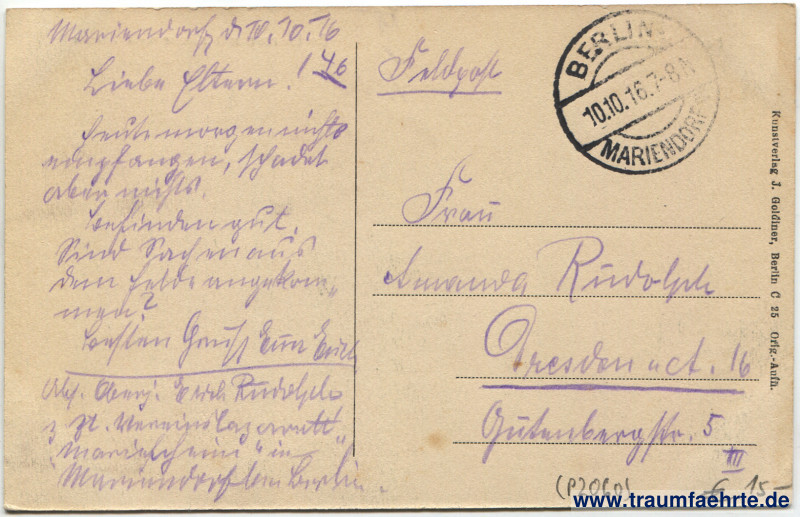 Mariendorf, d 10.10.16
Liebe Eltern! 46
Heute morgen nichts
empfangen, schadet
aber nichts.
Befinden gut.
Sind Sachen aus
dem Felde angekom„
men?
Besten Gruß Euer Erich
Abs. Oberj. Erich Rudolph
z Zt. Vereinslazarett
„Marienheim" in
Mariendorf bei Berlin.
Feldpost
BERLIN-
10.10.16.7-8
MARIENDORF
Frau
Amanda Rudolph
Dresden Act. 16
Gutenbergstr. 5
III
Kunstverlag J. Goldiner, Berlin C 25 Orig.-Aufn.
(P2060)
15-
www.traumfaehrte.de